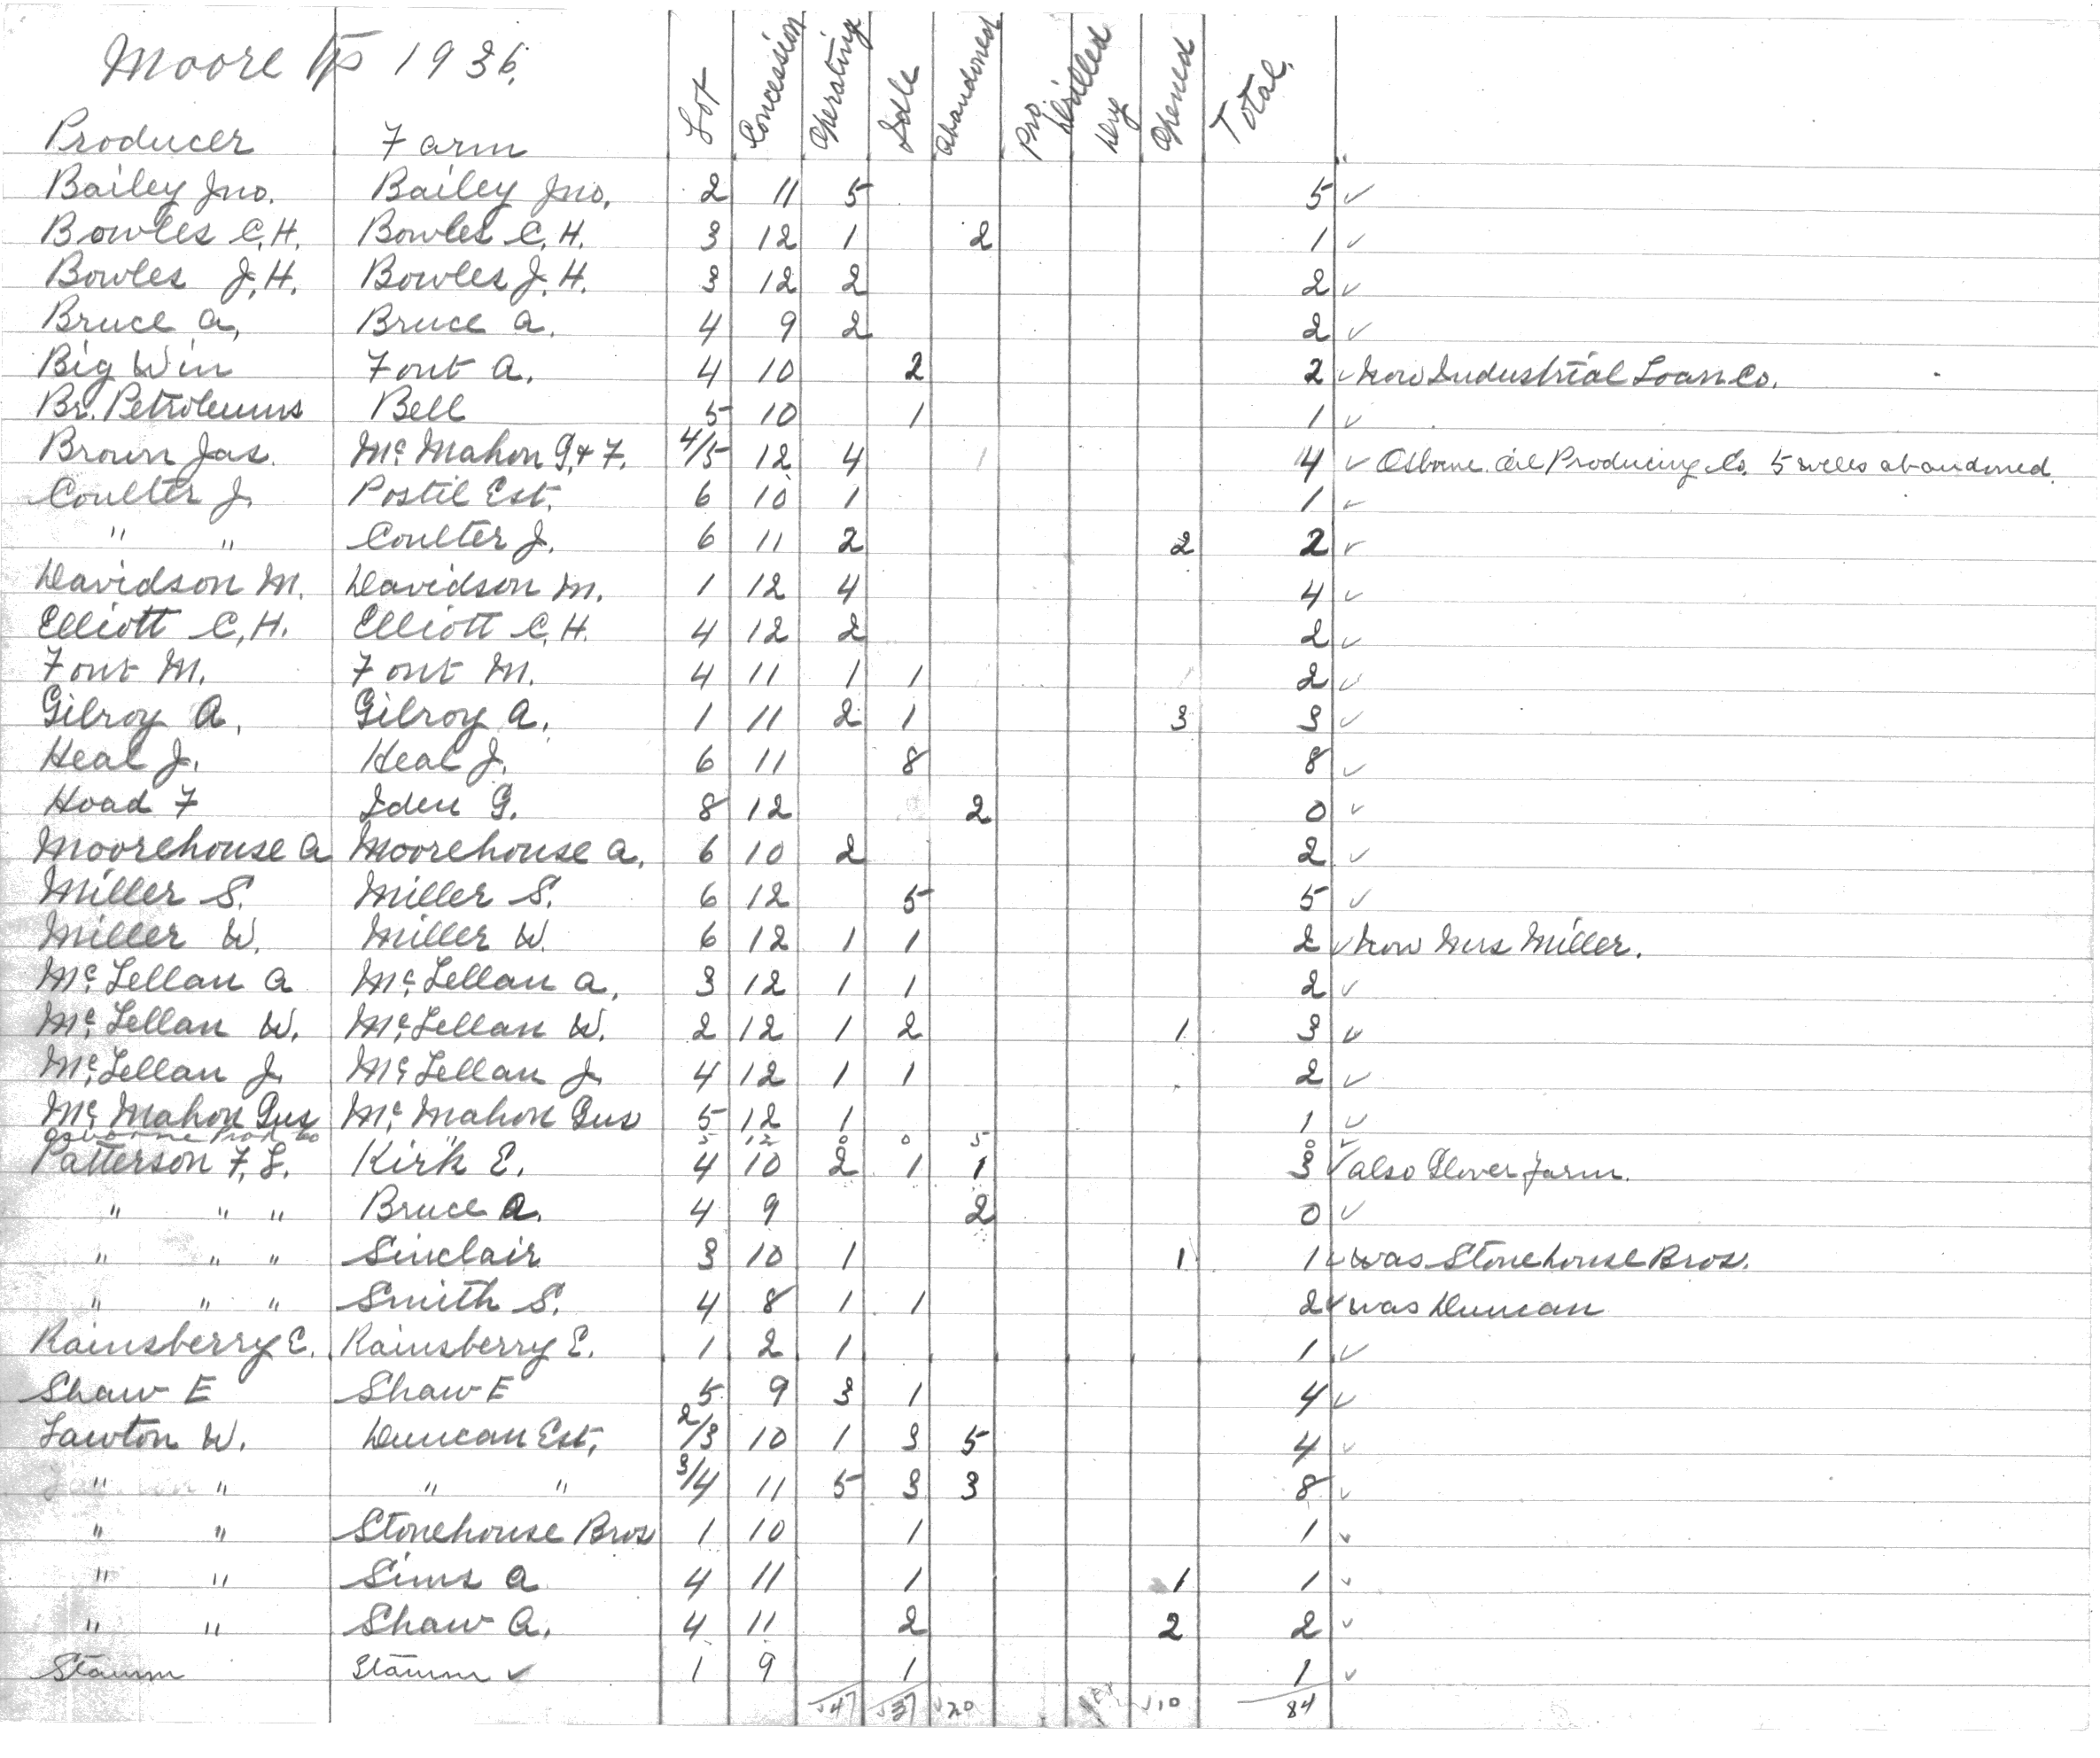 Moore Tp 1936.
Producer Farm Lot Concession Operating Idle Abandoned Pro Drilled Dry Opened Total.
Bailey Jno. Bailey Jno. 2 11 5 5 ✓
Bowles C.H. Bowles C.H. 3 12 1 2 1 ✓
Bowles J.H. Bowles J.H. 3 12 2 2 ✓
Bruce A. Bruce A. 4 9 2 2 ✓
Big Win Font A. 4 10 2 2 ✓ Now Industrial Loan Co.
Br. Petroleums Bell 5 10 1 1 ✓
Brown Jas. McMahon G. & F. 4/5 12 4 1 4 ✓ Osborne Oil Producing Co. 5 wells abandoned.
Coulter J. Postil Est. 6 10 1 1 ✓
" " Coulter J. 6 11 2 2 2 ✓
Davidson M. Davidson M. 1 12 4 4 ✓
Elliott C.H. Elliott C.H. 4 12 2 2 ✓
Font M. Font M. 4 11 1 1 2 ✓
Gilroy A. Gilroy A. 1 11 2 1 3 3 ✓
Heal J. Heal J. 6 11 8 8 ✓
Hoad F Iden G. 8 12 2 0 ✓
Moorehouse A Moorehouse A. 6 10 2 2 ✓
Miller S. Miller S. 6 12 5 5 ✓
Miller W. Miller W. 6 12 1 1 2 ✓ Now Mrs Miller.
McLellan A McLellan A. 3 12 1 1 2 ✓
McLellan W. McLellan W. 2 12 1 2 1 3 ✓
McLellan J. McLellan J. 4 12 1 1 2 ✓
McMahon Gus McMahon Gus 5 12 1 1 ✓
Osborne Prod Co " 5 12 0 0 5 0 ✓
Patterson F.L. Kirk E. 4 10 2 1 1 3 ✓ also Glover farm.
" " " Bruce A. 4 9 2 0 ✓
" " " Sinclair 3 10 1 1 1 ✓ was Stonehouse Bros.
" " " Smith S. 4 8 1 1 2 ✓ was Duncan
Rainsberry E. Rainsberry E. 1 2 1 1 ✓
Shaw E Shaw E 5 9 3 1 4 ✓
Lawton W. Duncan Est. 2/3 10 1 3 5 4 ✓
" " " " 3/4 11 5 3 3 8 ✓
" " Stonehouse Bros 1 10 1 1 ✓
" " Sims A 4 11 1 1 1 ✓
" " Shaw A. 4 11 2 2 2 ✓
Stamm Stamm ✓ 1 9 1 1 ✓
✓47 ✓37 ✓20 ✓10 84